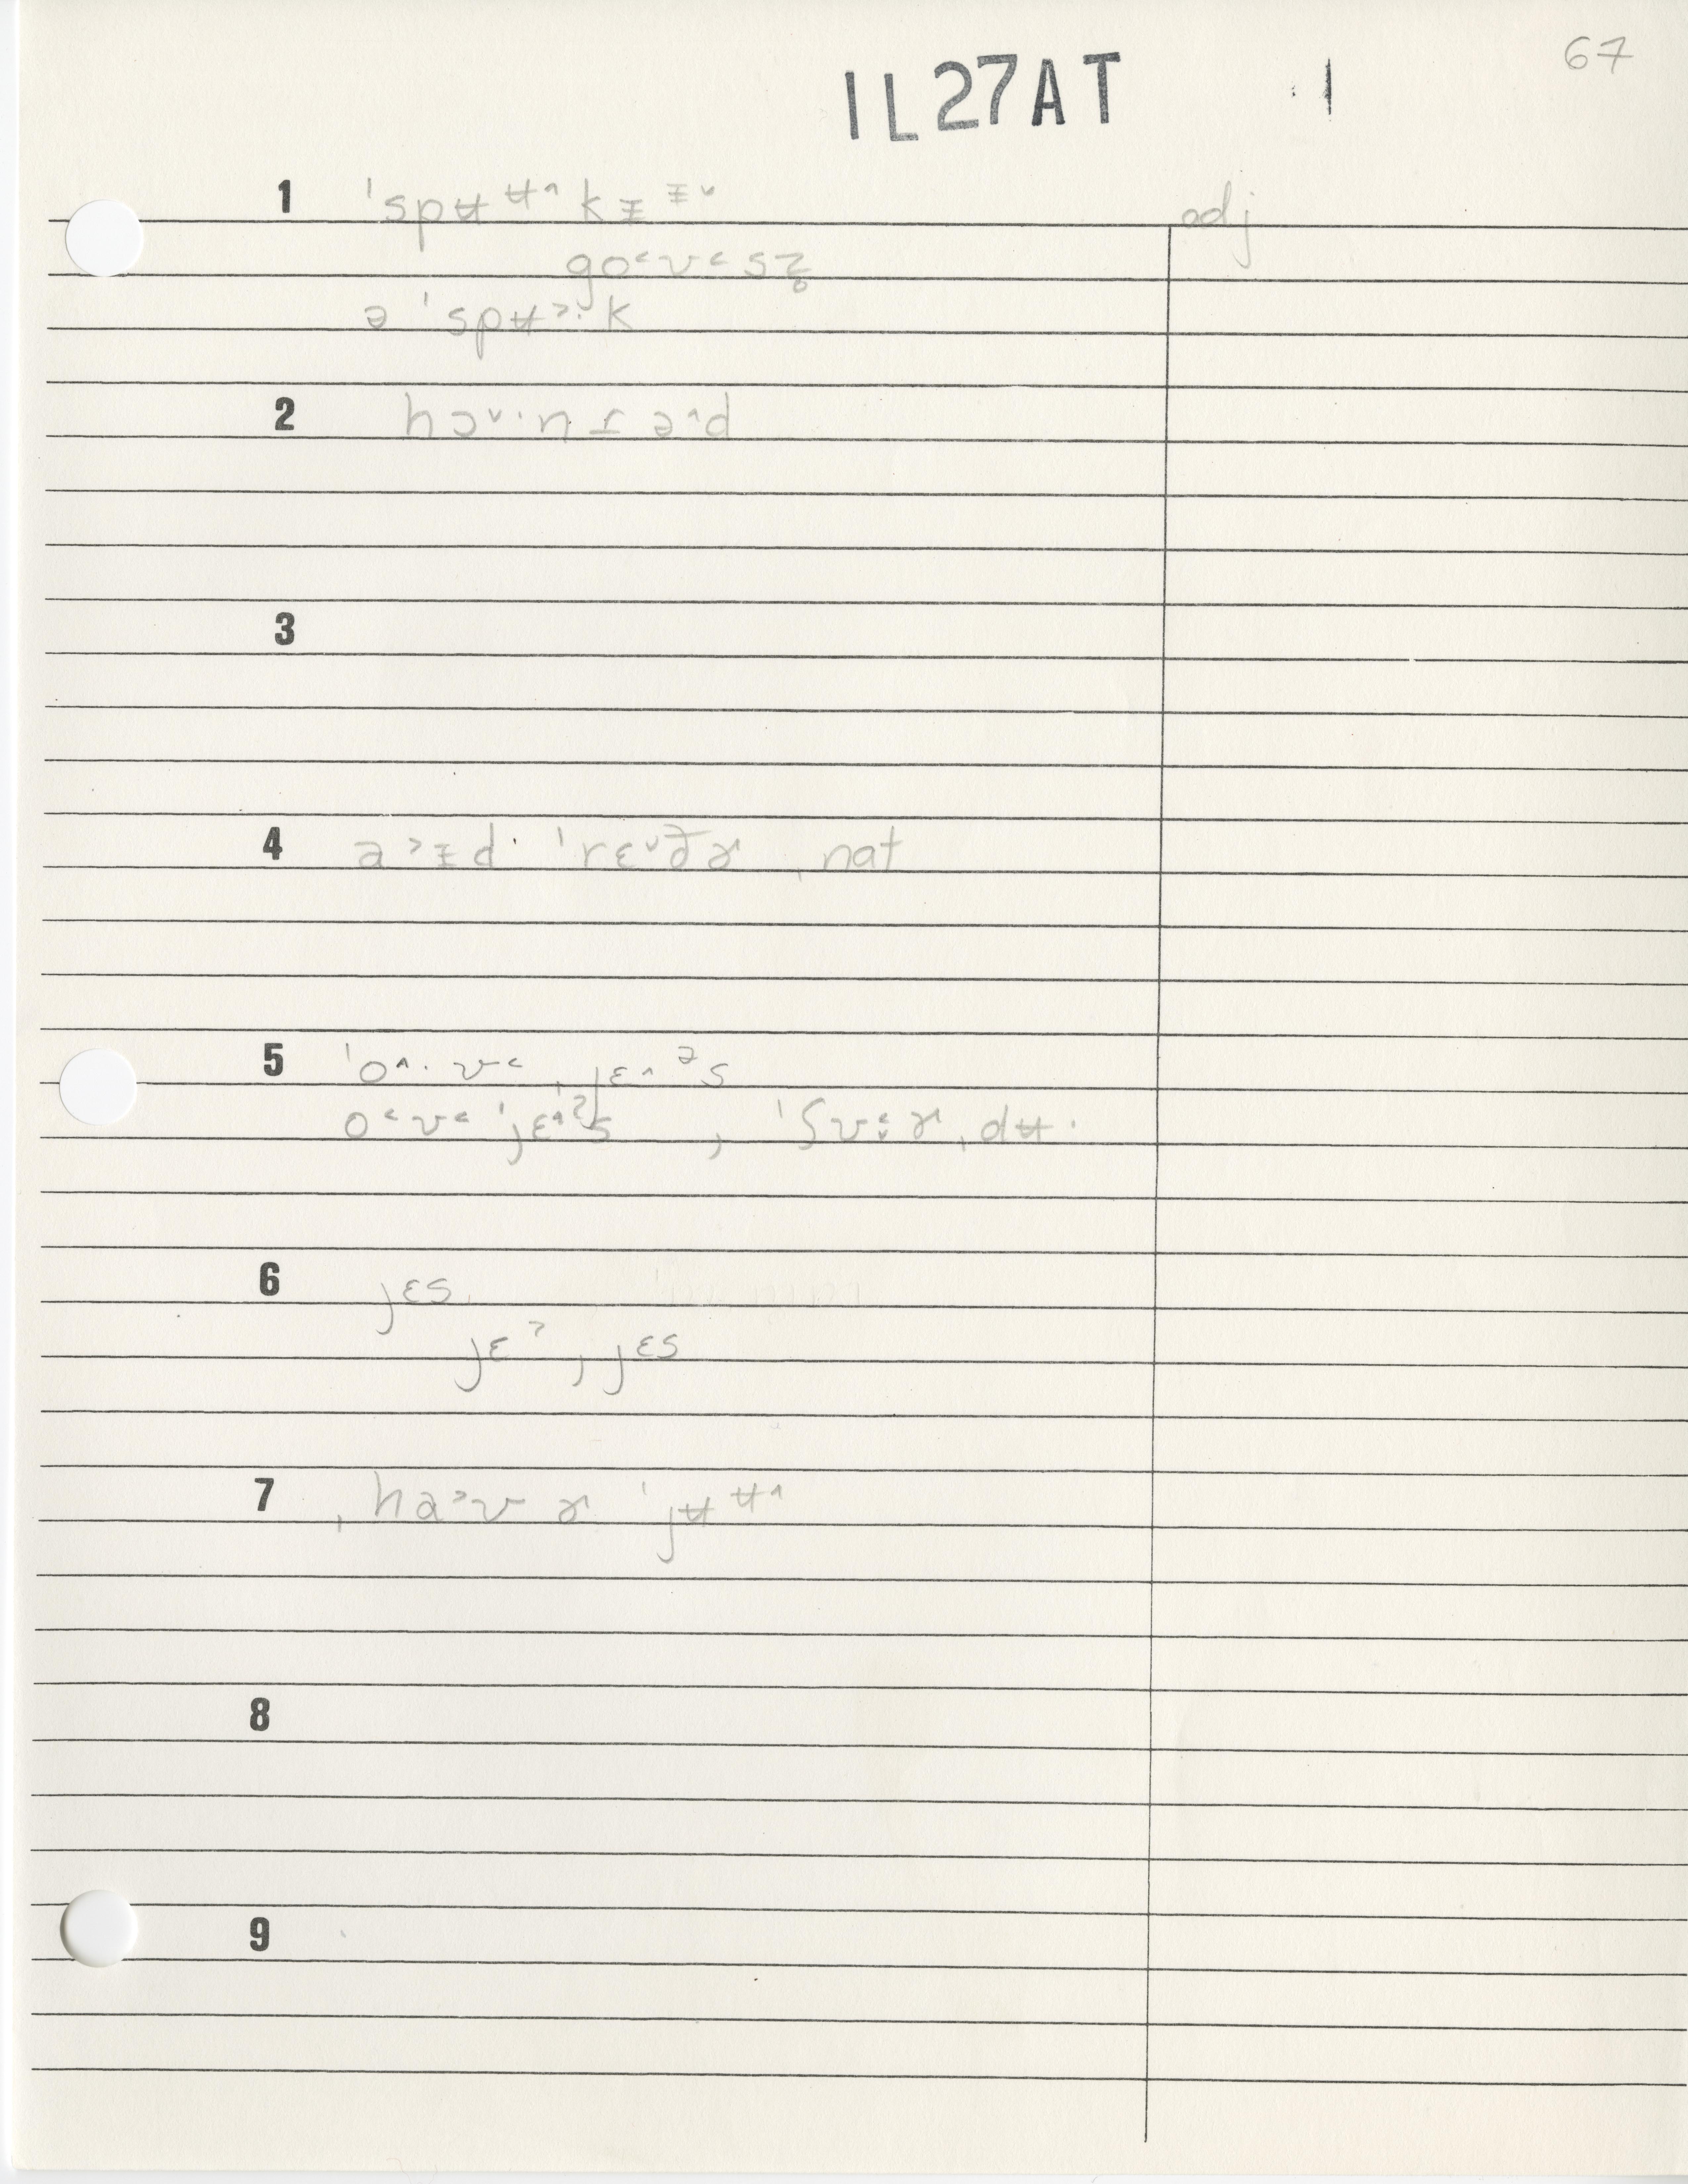 67
IL27AT 1
1 ˈspʉʉ˄kɪ̵ɪ̵˅ adj
go˂ʊ˂sz̥
ə ˈspʉ˃·k
2 hɔ˅·n ɪ ə˄d
3
4 a˃ɪ̵d· ˈrɛ˅ðɚ ˌnat
5 ˈo˄·ʊ˂ ˌjɛ˄ᵊs
o˂ʊ˂ ˈjɛ˄ᵊs , ˈʃʊ˂ːɚ ˌdʉ·
6 jɛs
jɛˀ , jɛs
7 ˌha˃ʊ ɚ ˈjʉʉ˄
8
9